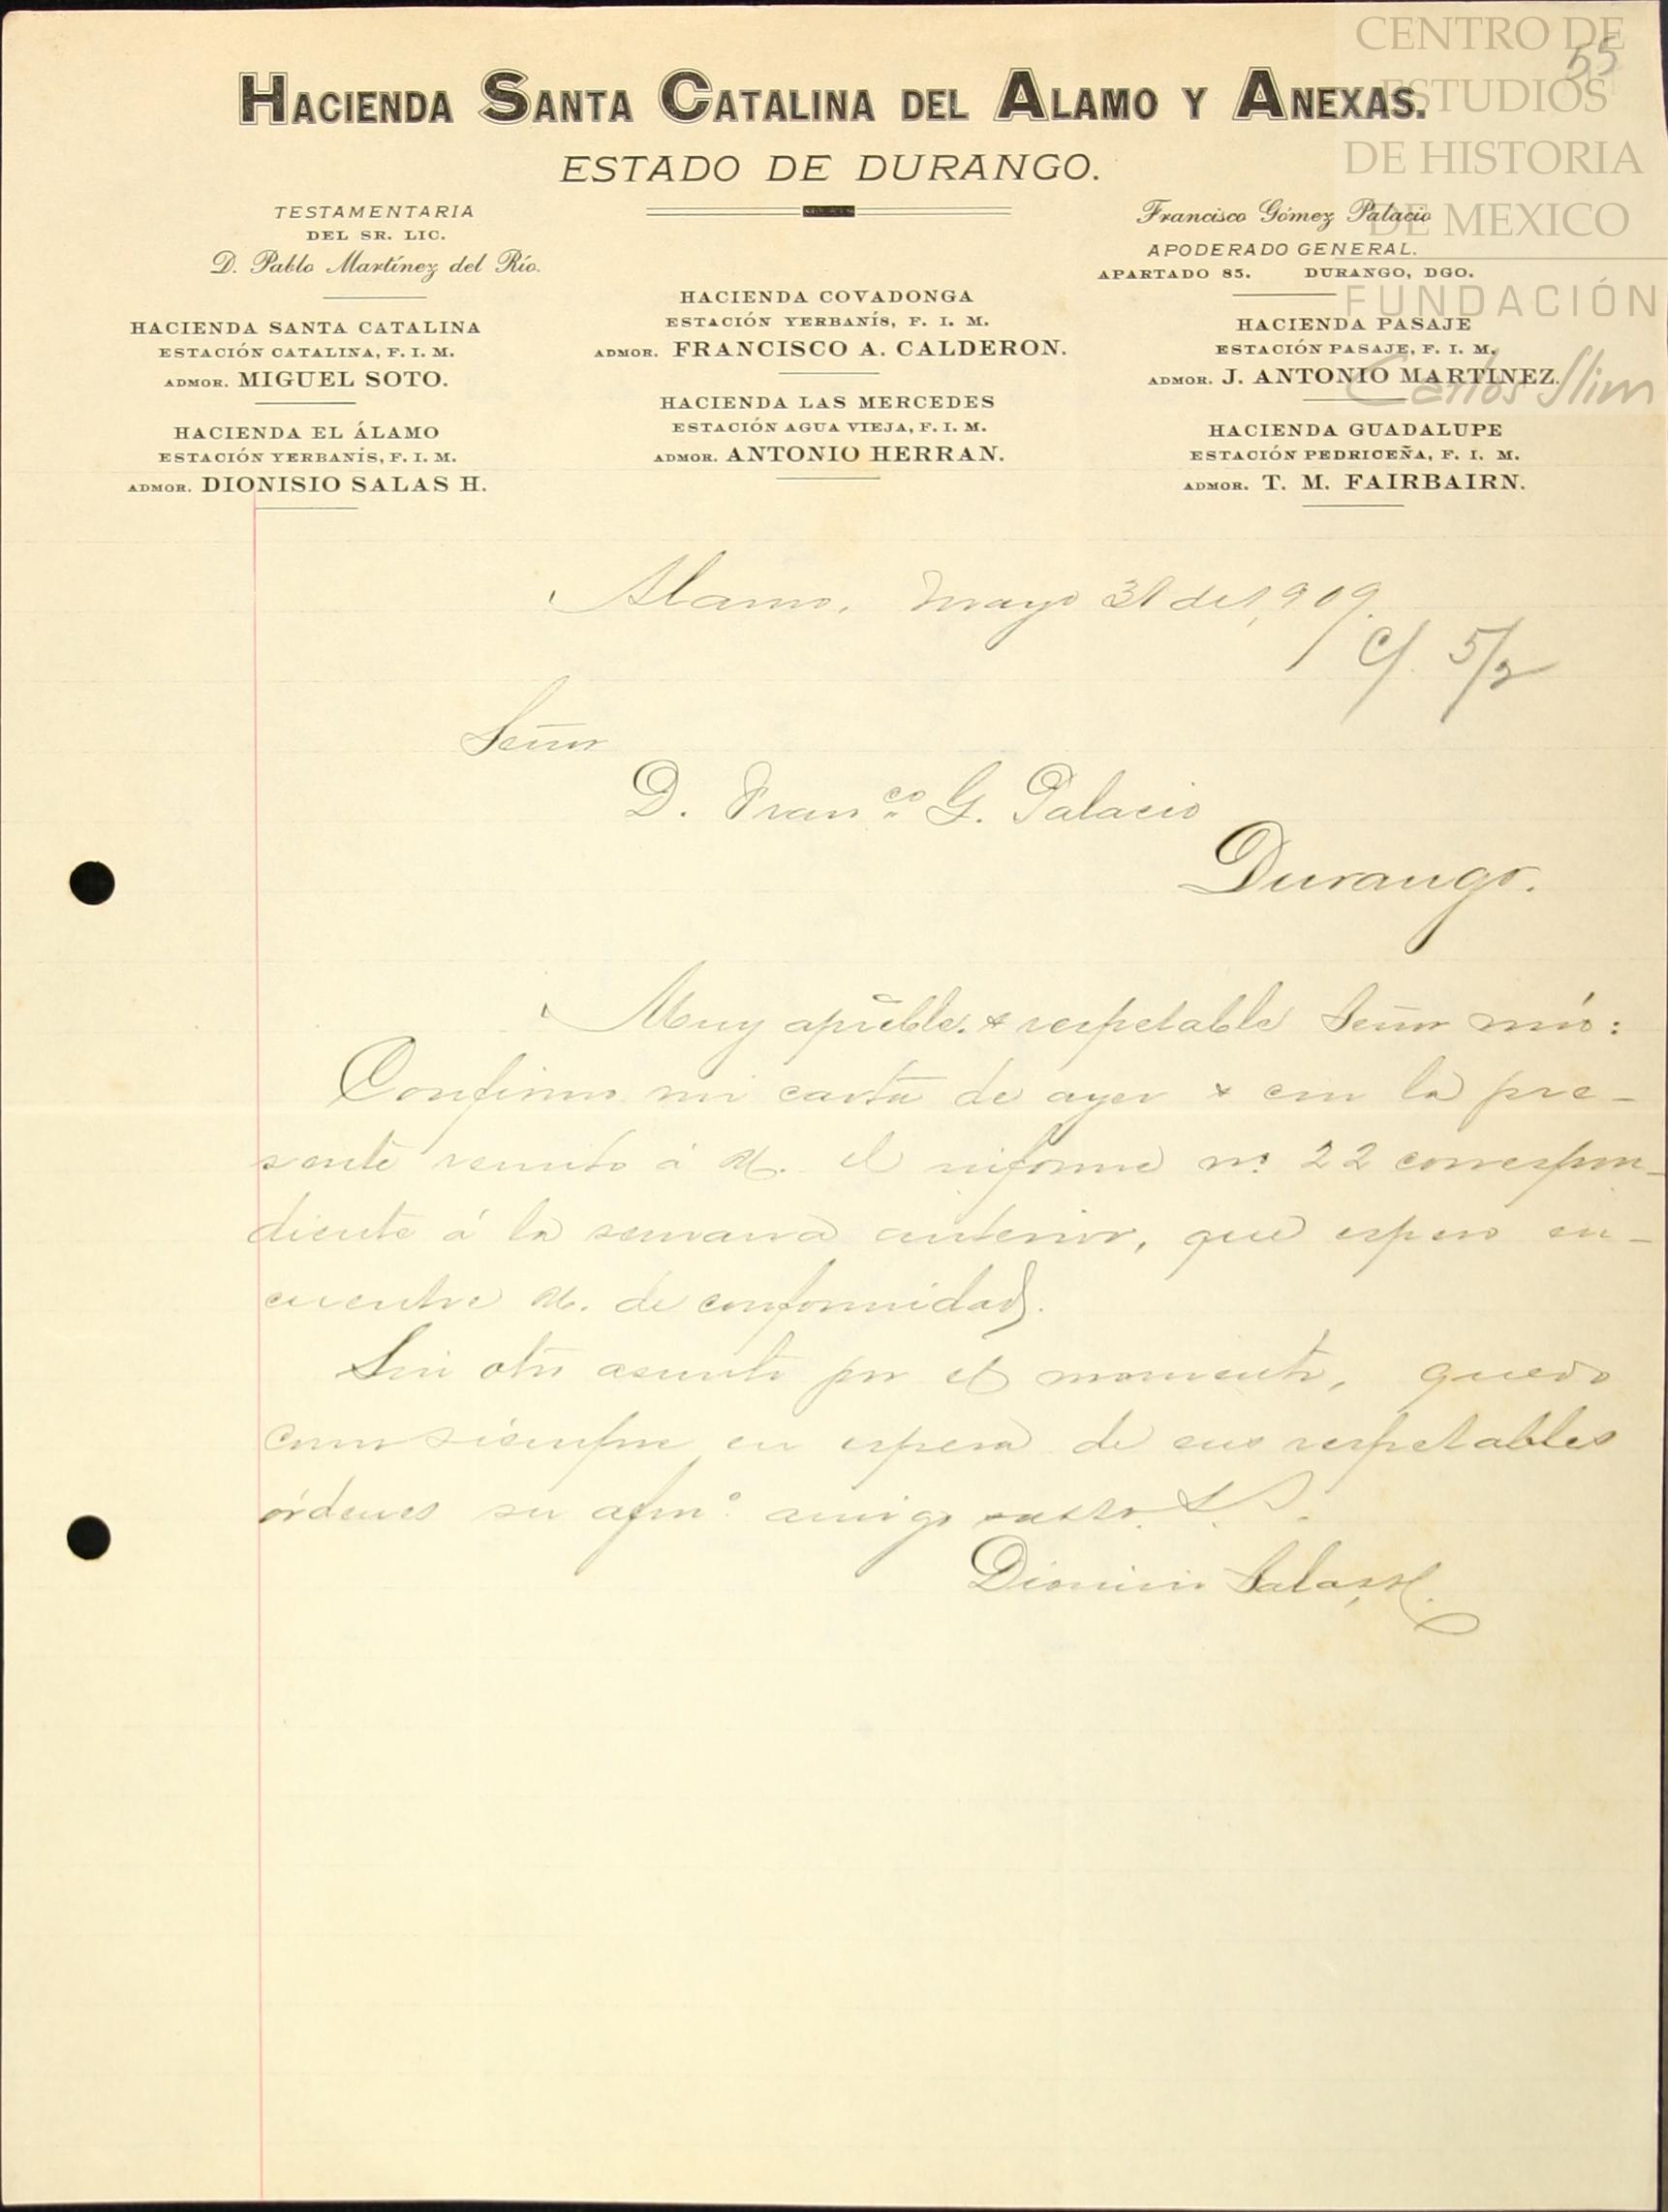 CENTRO DE
ESTUDIOS
DE HISTORIA
DE MEXICO
FUNDACIÓN
Carlos Slim
55
HACIENDA SANTA CATALINA DEL ALAMO Y ANEXAS.
ESTADO DE DURANGO.
TESTAMENTARIA
DEL SR. LIC.
D. Pablo Martínez del Río.
HACIENDA SANTA CATALINA
ESTACIÓN CATALINA, F. I. M.
ADMOR. MIGUEL SOTO.
HACIENDA EL ÁLAMO
ESTACIÓN YERBANÍS, F. I. M.
ADMOR. DIONISIO SALAS H.
HACIENDA COVADONGA
ESTACIÓN YERBANÍS, F. I. M.
ADMOR. FRANCISCO A. CALDERON.
HACIENDA LAS MERCEDES
ESTACIÓN AGUA VIEJA, F. I. M.
ADMOR. ANTONIO HERRAN.
Francisco Gómez Palacio
APODERADO GENERAL.
APARTADO 85. DURANGO, DGO.
HACIENDA PASAJE
ESTACIÓN PASAJE, F. I. M.
ADMOR. J. ANTONIO MARTINEZ.
HACIENDA GUADALUPE
ESTACIÓN PEDRICEÑA, F. I. M.
ADMOR. T. M. FAIRBAIRN.
Alamo, Mayo 31 de 1,909.
C/. 5/2
Señor
D. Fran.co G. Palacio
Durango.
Muy apreble. & respetable Señor mío:
Confirmo mi carta de ayer & con la pre-
sente remito á U. el informe no. 22 correspon-
diente á la semana anterior, que espero en-
cuentre U. de conformidad.
Sin otro asunto por el momento, quedo
como siempre en espera de sus respetables
órdenes su afmo. amigo S. S.
Dionisio Salas H.